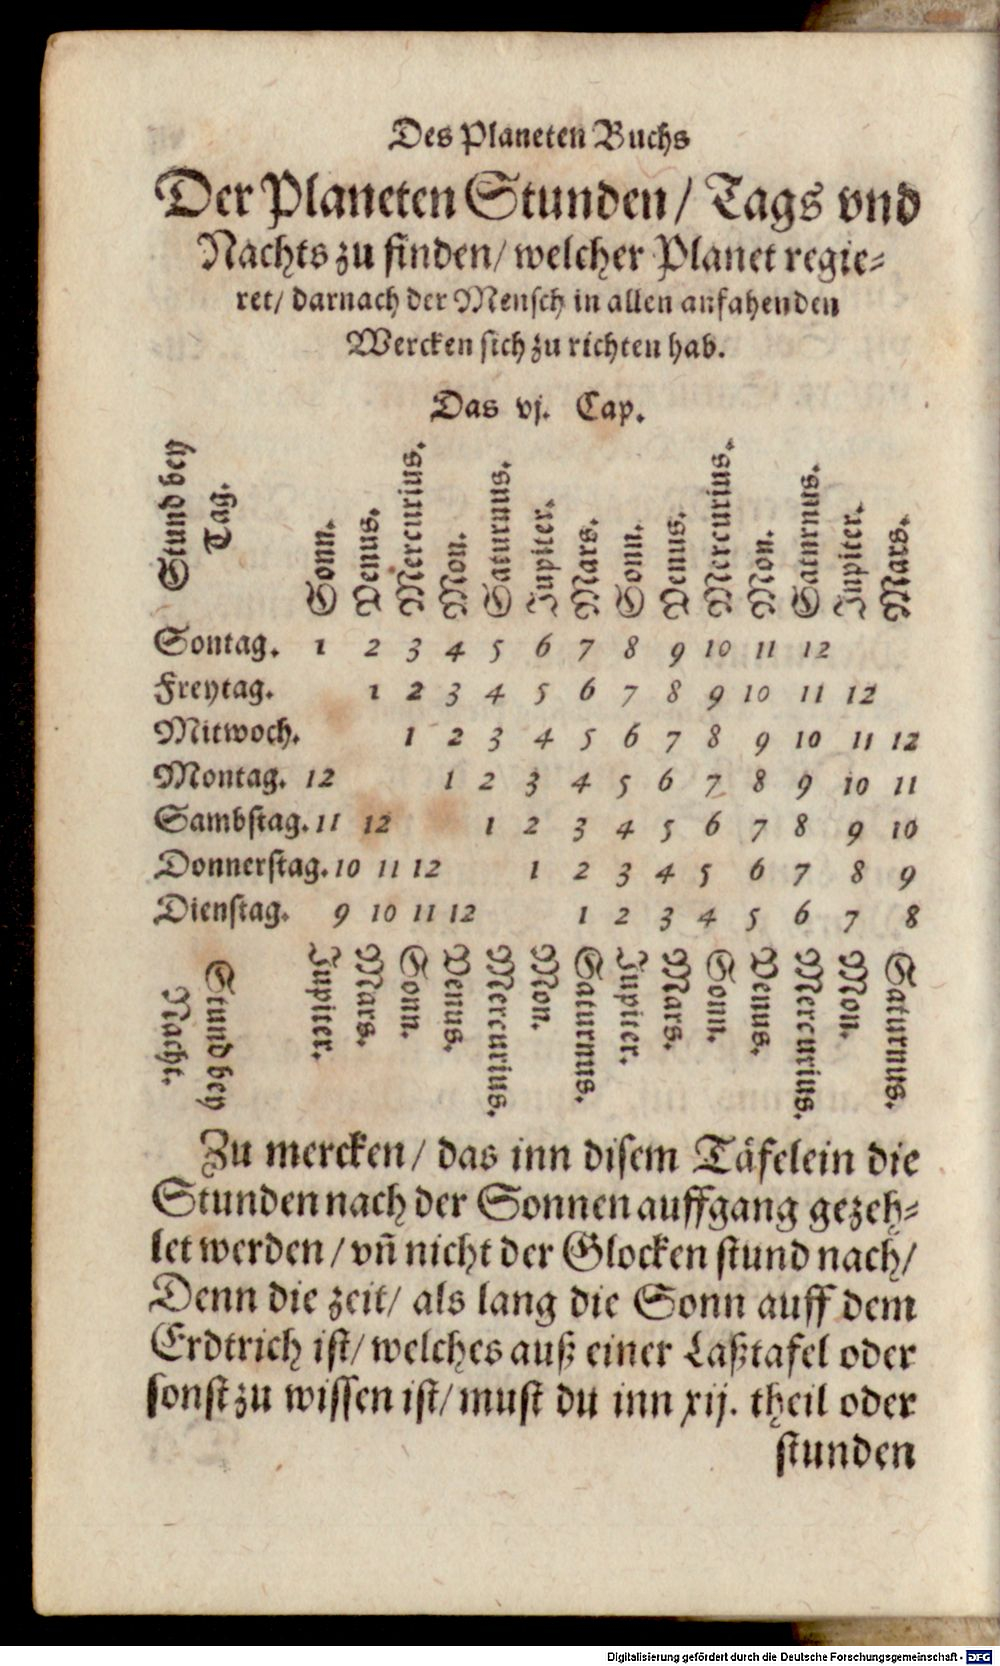 Des Planeten Buchs
Der Planeten Stunden / Tags vnd
Nachts zu finden / welcher Planet regie-
ret / darnach der Mensch in allen anfahenden
Wercken sich zu richten hab.
Das vj. Cap.
Stund bey Tag. Sonn. Venus. Mercurius. Mon. Saturnus. Jupiter. Mars. Sonn. Venus. Mercurius. Mon. Saturnus. Jupiter. Mars.
Sontag. 1 2 3 4 5 6 7 8 9 10 11 12
Freytag. 1 2 3 4 5 6 7 8 9 10 11 12
Mitwoch. 1 2 3 4 5 6 7 8 9 10 11 12
Montag. 12 1 2 3 4 5 6 7 8 9 10 11
Sambstag. 11 12 1 2 3 4 5 6 7 8 9 10
Donnerstag. 10 11 12 1 2 3 4 5 6 7 8 9
Dienstag. 9 10 11 12 1 2 3 4 5 6 7 8
Stund bey Nacht. Jupiter. Mars. Sonn. Venus. Mercurius. Mon. Saturnus. Jupiter. Mars. Sonn. Venus. Mercurius. Mon. Saturnus.
Zu mercken / das inn disem Täfelein die
Stunden nach der Sonnen auffgang gezeh-
let werden / vñ nicht der Glocken stund nach /
Denn die zeit / als lang die Sonn auff dem
Erdtrich ist / welches auß einer Laßtafel oder
sonst zu wissen ist / must du inn xij. theil oder
stunden
Digitalisierung gefördert durch die Deutsche Forschungsgemeinschaft - DFG